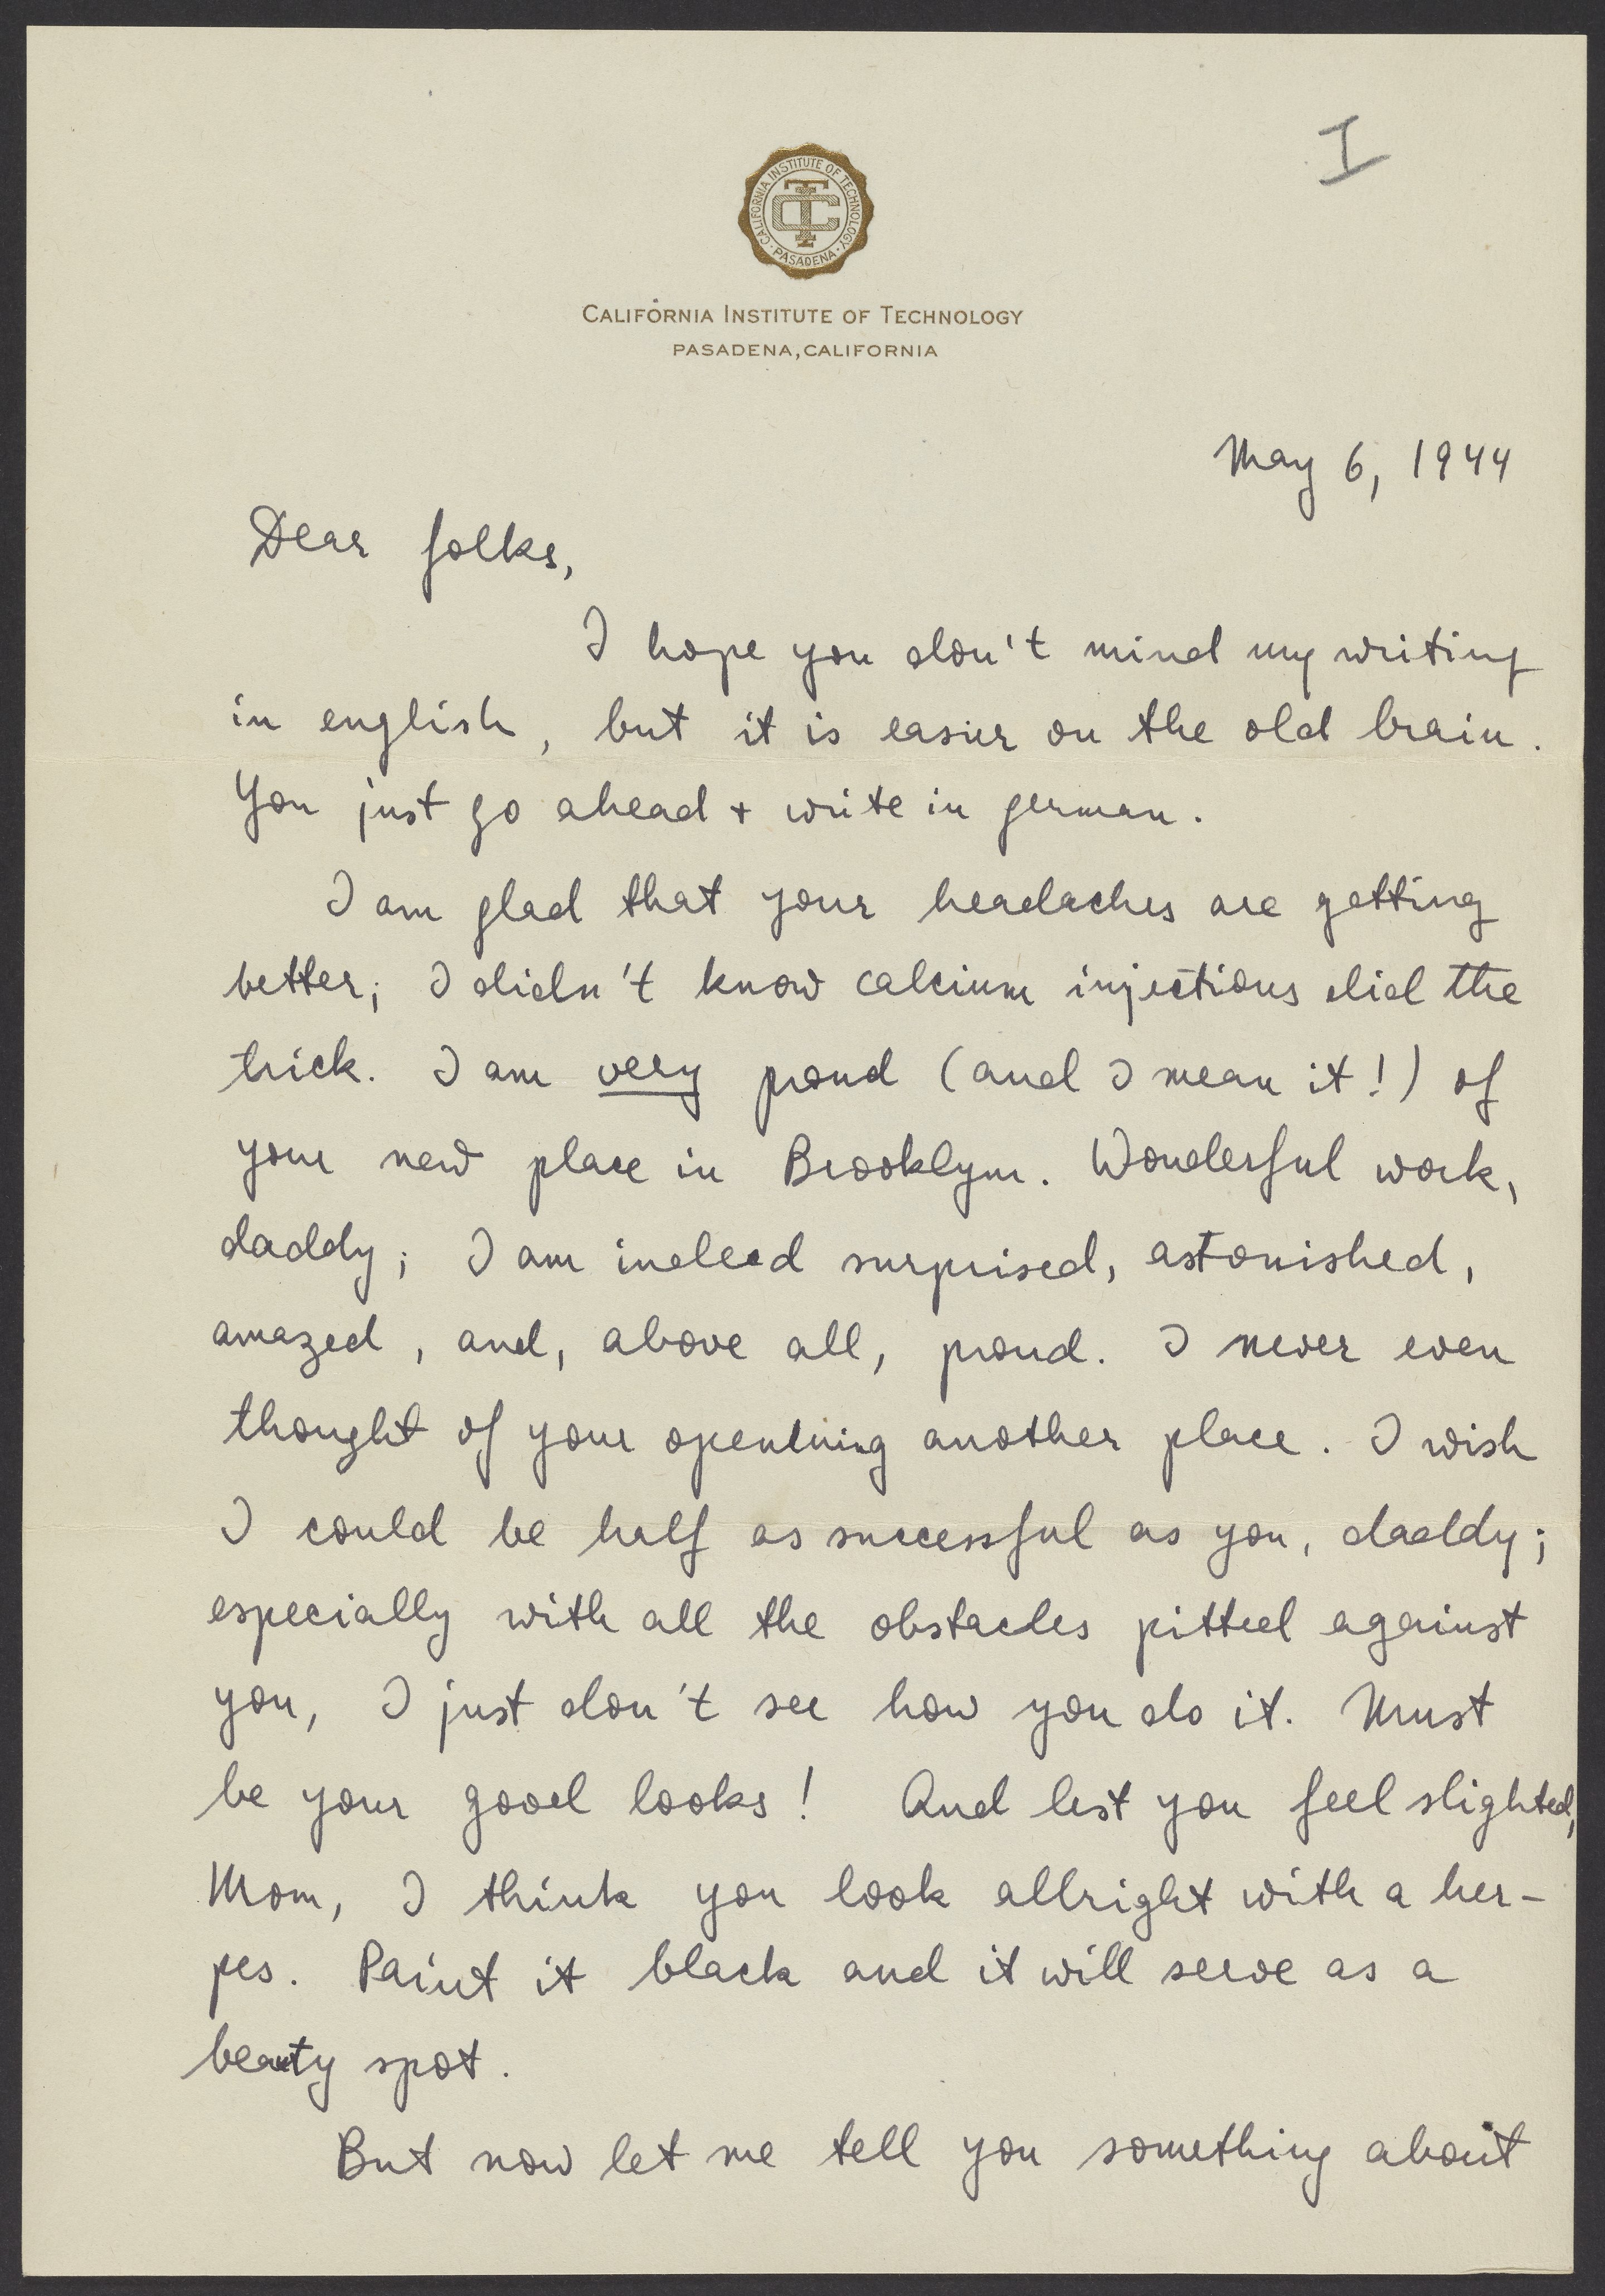 I
CALIFORNIA INSTITUTE OF TECHNOLOGY
· PASADENA ·
CALIFORNIA INSTITUTE OF TECHNOLOGY
PASADENA, CALIFORNIA
May 6, 1944
Dear folks,
I hope you don't mind my writing
in english, but it is easier on the old brain.
You just go ahead + write in german.
I am glad that your headaches are getting
better; I didn't know calcium injections did the
trick. I am very proud (and I mean it!) of
your new place in Brooklyn. Wonderful work,
daddy; I am indeed surprised, astonished,
amazed, and, above all, proud. I never even
thought of your openining another place. I wish
I could be half as successful as you, daddy;
especially with all the obstacles pitted against
you, I just don't see how you do it. Must
be your good looks! And lest you feel slighted,
Mom, I think you look allright with a her-
pes. Paint it black and it will serve as a
beauty spot.
But now let me tell you something about